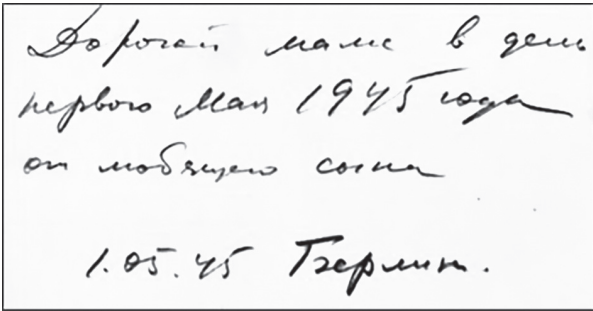 Дорогой маме в день
первого Мая 1945 года
от любящего сына
1.05.45 Берлин.